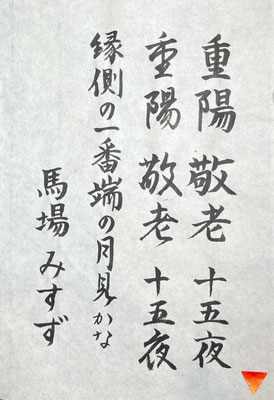 重陽 敬老 十五夜
重陽 敬老 十五夜
縁側の一番端の月見かな
馬場 みすず